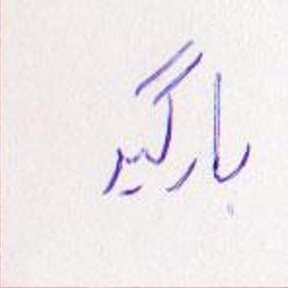 بارگیر